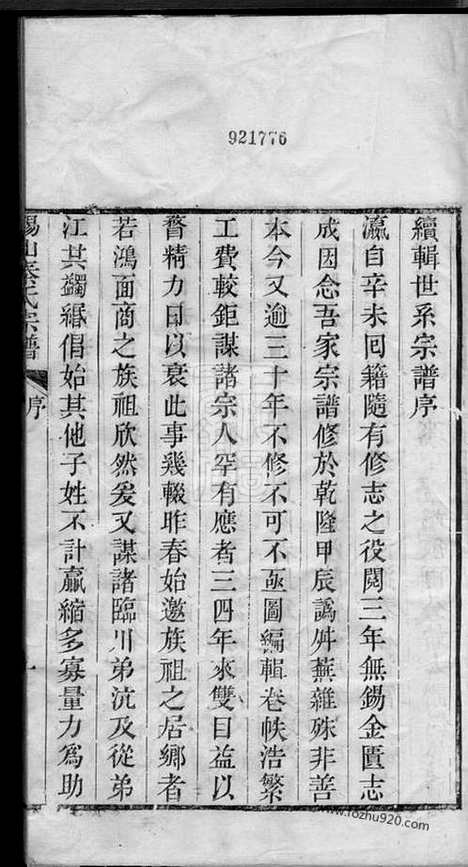 921776
續輯世系宗譜序
瀛自辛未回籍隨有修志之役閱三年無錫金匱志
成因念吾家宗譜修於乾隆甲辰譌舛蕪雜殊非善
本今又逾三十年不修不可不亟圖編輯卷帙浩繁
工費較鉅謀諸宗人罕有應者三四年來雙目益以
瞀精力日以衰此事幾輟昨春始邀族祖之居鄉者
若鴻面商之族祖欣然爰又謀諸臨川弟沆及從弟
江其蠲緡倡始其他子姓不計贏縮多寡量力為助
錫山秦氏宗譜 序 一
www.fozhu920.com